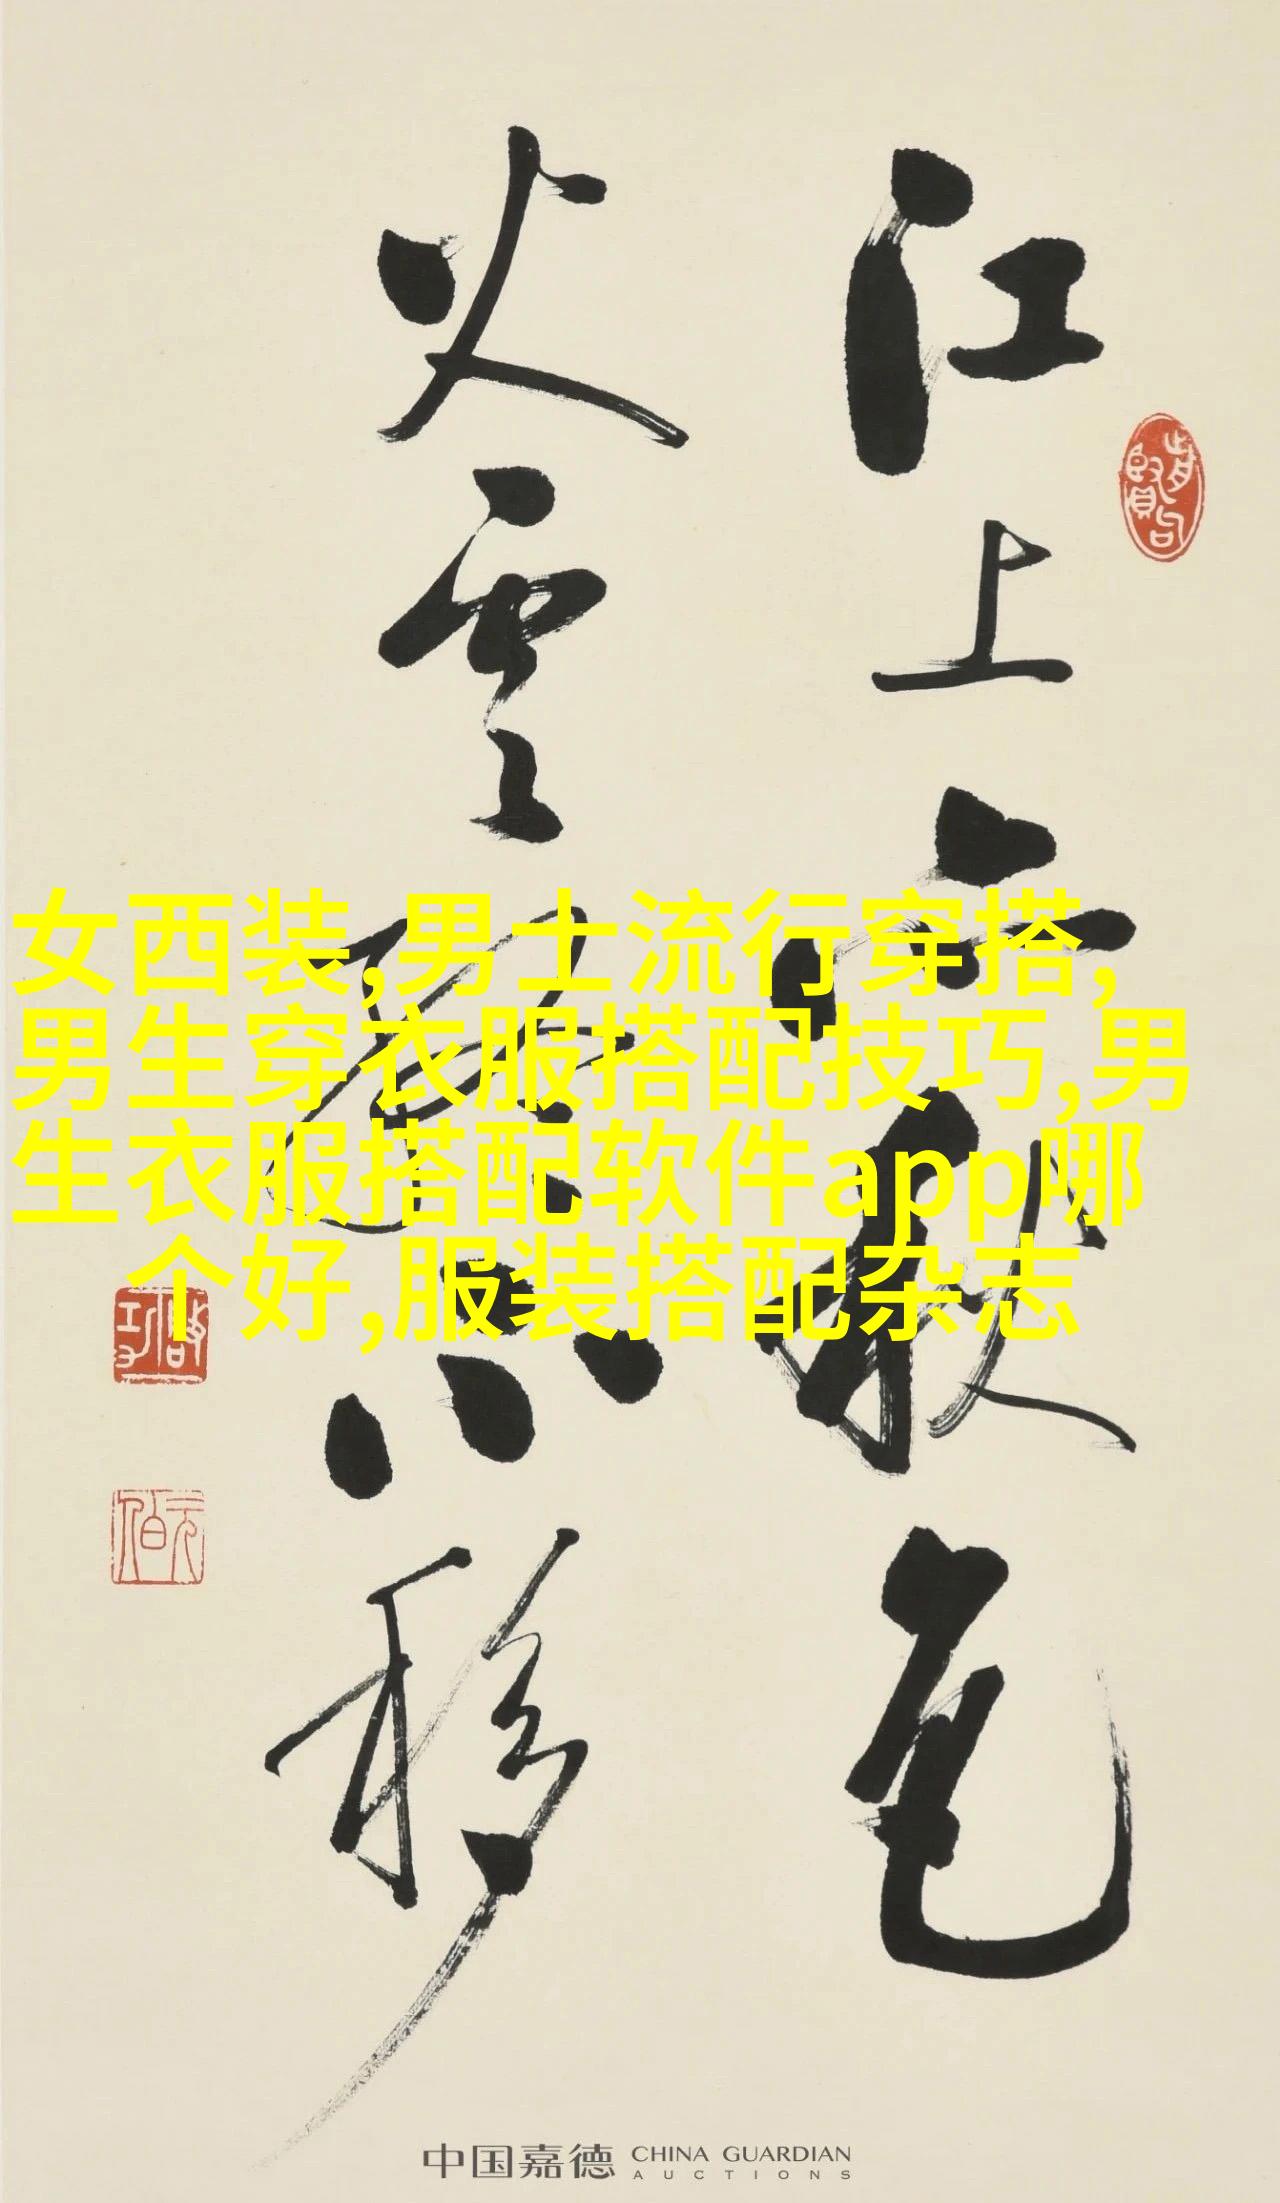 江上亦秋色
火雲終不移
女西装,男士流行穿搭,
男生穿衣服搭配技巧,男
生衣服搭配软件app哪
个好,服装搭配杂志
啓功
元伯
中国嘉德 CHINA GUARDIAN
AUCTIONS